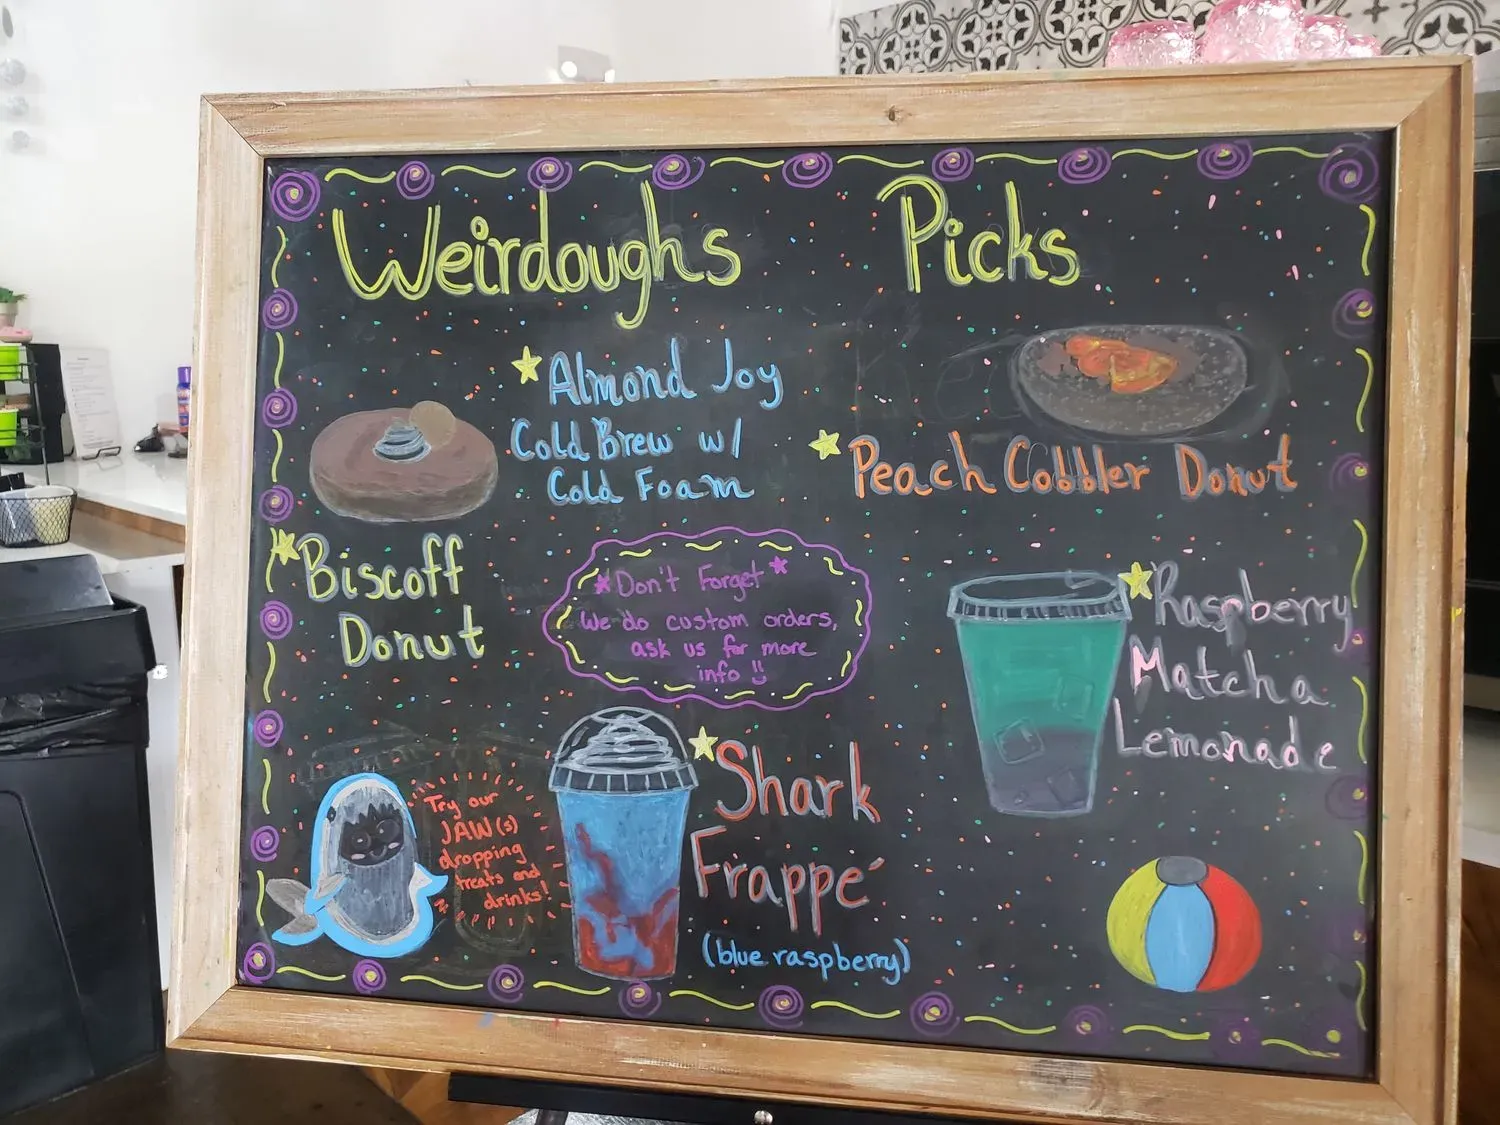 Weirdoughs Picks
Almond Joy
Cold Brew w/
Cold Foam
Peach Cobbler Donut
Biscoff
Donut
*Don't Forget*
We do custom orders,
ask us for more
info
Raspberry
Matcha
Lemonade
Try our
JAW(s)
dropping
treats and
drinks!
Shark
Frappé
(blue raspberry)